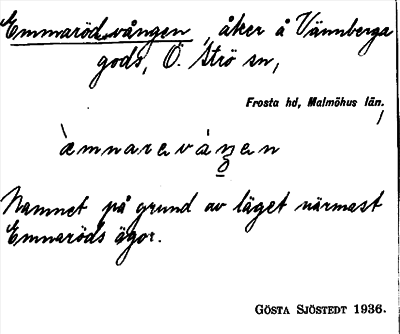 Emmarödsvången, åker å Vännberga
gods, Ö. Strö sn,
Frosta hd, Malmöhus län.
Namnet på grund av läget närmast
Emmaröds ägor.
GÖSTA SJÖSTEDT 1936.